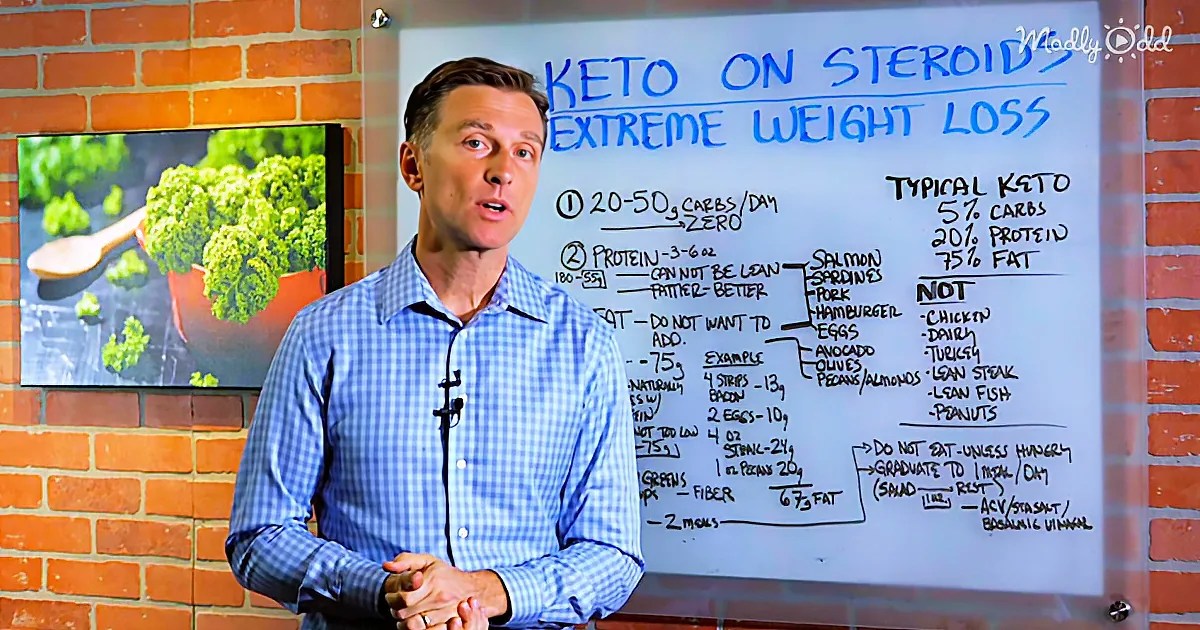 Madly Odd
KETO ON STEROIDS
EXTREME WEIGHT LOSS
① 20-50g CARBS/DAY
ZERO
② PROTEIN-3-6oz
180- 55g
CANNOT BE LEAN
FATTIER-BETTER
SALMON
SARDINES
PORK
HAMBURGER
EGGS
FAT - DO NOT WANT TO
ADD.
AVOCADO
OLIVES
PECANS/ALMONDS
-75g
NATURALLY
W)
NOT TOO LOW
-75g
EXAMPLE
4 STRIPS -13g
BACON
2 EGGS-10g
4 OZ
STEAK-24g
1 oz PECANS 20g
67g FAT
GREENS
- FIBER
- 2 MEALS
TYPICAL KETO
5% CARBS
20% PROTEIN
75% FAT
NOT
-CHICKEN
-DAIRY
-TURKEY
-LEAN STEAK
-LEAN FISH
-PEANUTS
DO NOT EAT-UNLESS HUNGRY
GRADUATE TO 1 MEAL/DAY
(SALAD REST)
1HR
- ACV/SEASALT/
BASALMIC VINEGAR